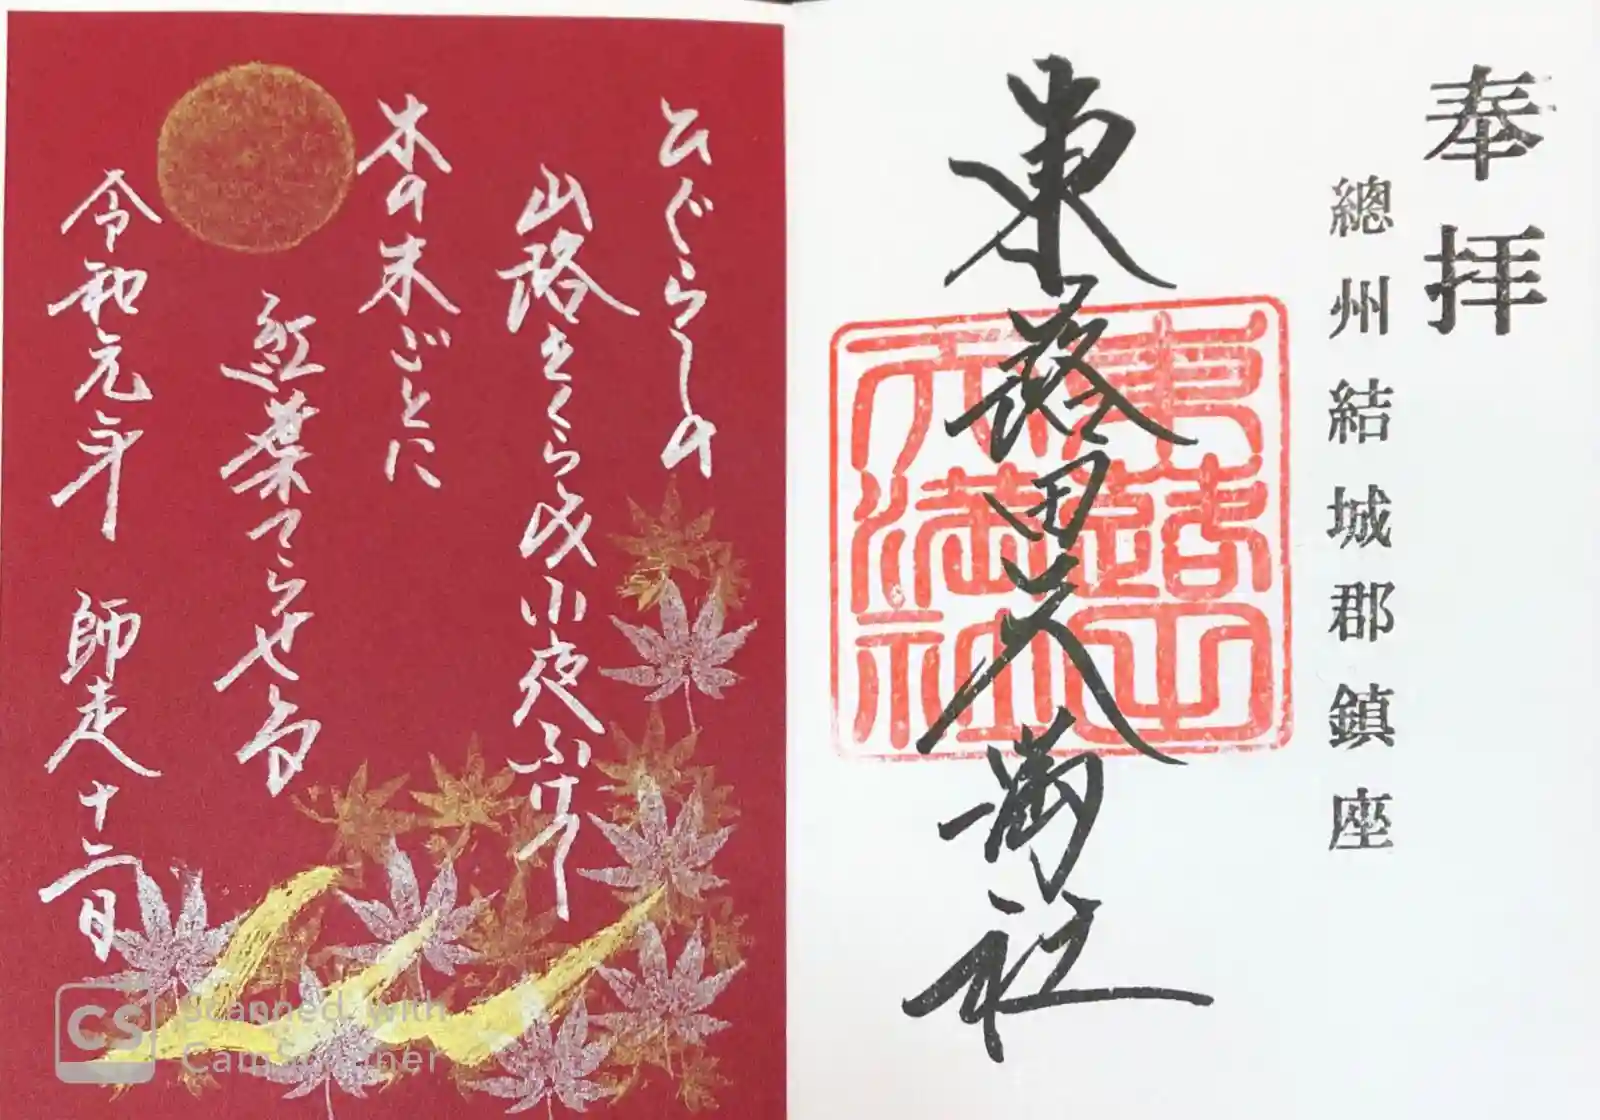 奉拝
總州結城郡鎮座
東蕗田天満社
東蕗田
天満社
ひぐらしの
山路をくらみ小夜ふけて
木の末ごとに
紅葉てらせる
令和元年 師走十二日
CS Scanned with
CamScanner